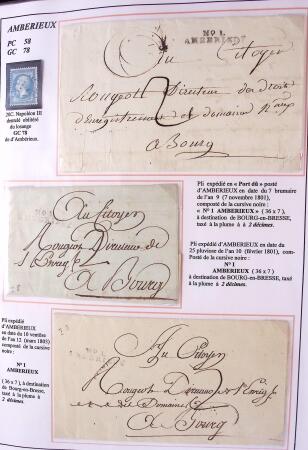 AMBERIEUX
PC 58
GC 78
20C. Napoléon III
dentelé oblitéré
du losange
GC 78
de d'Ambérieux.
N° 1.
AMBERIEUX
Au Citoyen
Rougeot Directeur des droits
d'Enregistrement et domaine N.aux
2
a Bourg
Pli expédié en « Port dû » posté
d'AMBERIEUX en date du 7 brumaire
de l'an 9 (7 novembre 1801),
composté de la cursive noire :
« N° 1 AMBERIEUX » ( 36 x 7 )
à destination de BOURG-EN-BRESSE, taxé
à la plume à 2 décimes.
Au Citoyen
Directeur de
2
A Bourg
Pli expédié d'AMBERIEUX en date du
25 pluviose de l'an 10 (février 1801), com-
Posté de la cursive noire :
N° 1
AMBERIEUX ( 36 x 7 )
à destination de BOURG-EN-BRESSE, taxé
à la plume à 2 décimes.
Pli expédié
d'AMBERIEUX
en date du 10 ventôse
de l'an 12 (mars 1803)
composté de la cursive
noire :
N° 1
AMBERIEUX
( 36 x 7 ), à destination
de Bourg-en-Bresse,
taxé à la plume à
2 décimes.
Au Citoyen
Rougeot Directeur
des Domaines
2
A Bourg